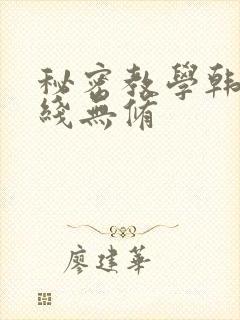 秘密教學韩
綫無修
廖建華